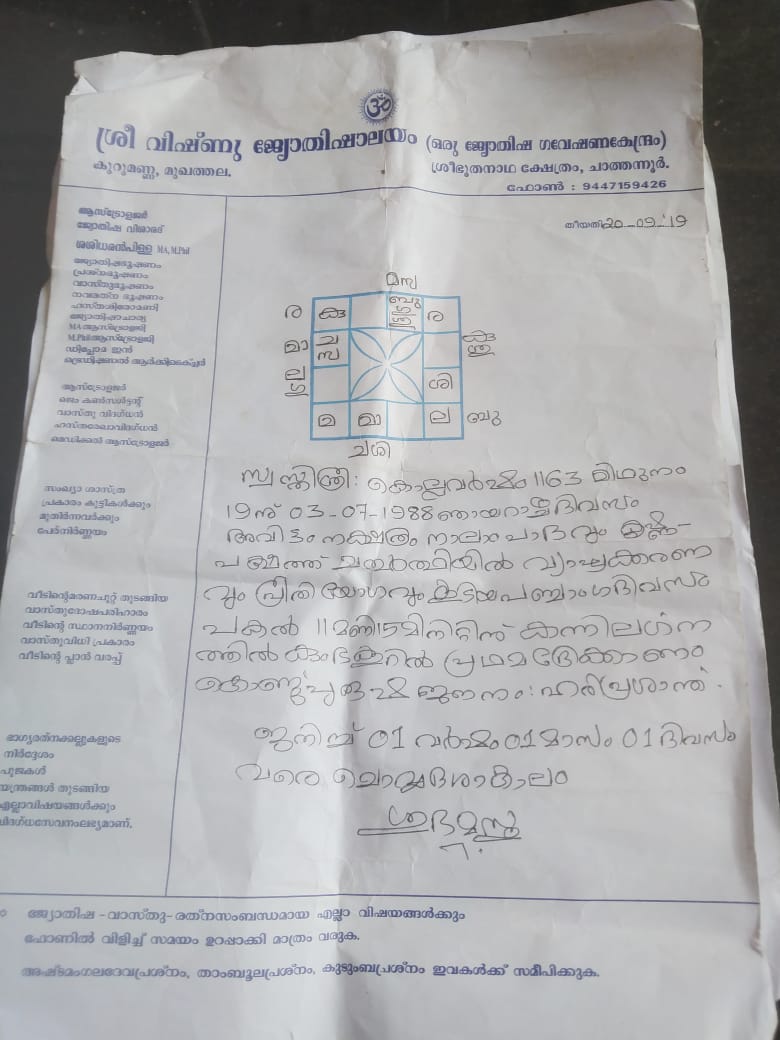 ॐ
ശ്രീ വിഷ്ണു ജ്യോതിഷാലയം (ഒരു ജ്യോതിഷ ഗവേഷണകേന്ദ്രം)
കുറുമണ്ണ, മുഖത്തല.
ശ്രീഭൂതനാഥ ക്ഷേത്രം, ചാത്തന്നൂർ.
ഫോൺ : 9447159426
തീയതി 20-09-'19
ആസ്ട്രോളജർ
ജ്യോതിഷ വിശാരദ്
ശശിധരൻപിള്ള MA, M.Phil
ജ്യോതിഷഭൂഷണം
പ്രശ്നഭൂഷണം
വാസ്തുഭൂഷണം
നവരത്ന ഭൂഷണം
ഹസ്തശിരോമണി
ജ്യോതിഷാചാര്യ
MA ആസ്ട്രോളജി
M.Phil ആസ്ട്രോളജി
ഡിപ്ലോമ ഇൻ
ട്രെഡിഷണൽ ആർക്കിടെക്ചർ
ആസ്ട്രോളജർ
ജെം കൺസൾട്ടന്റ്
വാസ്തു വിദഗ്ധൻ
ഹസ്തരേഖാവിദഗ്ധൻ
മെഡിക്കൽ ആസ്ട്രോളജർ
സംഖ്യാ ശാസ്ത്ര
പ്രകാരം കുട്ടികൾക്കും
മുതിർന്നവർക്കും
പേര്നിർണ്ണയം
വീടിന്റെമരണചുറ്റ് തുടങ്ങിയ
വാസ്തുദോഷപരിഹാരം
വീടിന്റെ സ്ഥാനനിർണ്ണയം
വാസ്തുവിധി പ്രകാരം
വീടിന്റെ പ്ലാൻ വരപ്പ്
ഭാഗ്യരത്നക്കല്ലുകളുടെ
നിർദ്ദേശം
പൂജകൾ
യന്ത്രങ്ങൾ തുടങ്ങിയ
എല്ലാവിഷയങ്ങൾക്കും
വിദഗ്ധസേവനംലഭ്യമാണ്.
മസ
ര കു ബു ഗു ശു ര
മാ ച സ
ഗു ല ശി
മ മാ ല ബു
ചശി
സ്വസ്തിശ്രീ: കൊല്ലവർഷം 1163 മിഥുനം
19ന് 03-07-1988 ഞായറാഴ്ചദിവസം
അവിട്ടം നക്ഷത്രം നാലാംപാദവും കൃഷ്ണ-
പക്ഷത്ത് ചതുർത്ഥിയിൽ വ്യാഘ്രക്കരണ
വും പ്രീതി യോഗവും കൂടിയപഞ്ചാംഗദിവസം
പകൽ 11മണി 15മിനിറ്റിന് കന്നിലഗ്ന
ത്തിൽ കുംഭക്കൂറിൽ പ്രഥമദ്രേക്കാണം
കൊണ്ടു പുരുഷ ജനനം: ഹരിപ്രശാന്ത്.
ജനിച്ച് 01 വർഷം 01മാസം 01ദിവസം
വരെ ചൊവ്വദശാകാലം
ശുഭമസ്തു
ജ്യോതിഷ -വാസ്തു- രത്നസംബന്ധമായ എല്ലാ വിഷയങ്ങൾക്കും
ഫോണിൽ വിളിച്ച് സമയം ഉറപ്പാക്കി മാത്രം വരുക.
അഷ്ടമംഗലദേവപ്രശ്നം, താംബൂലപ്രശ്നം, കുടുംബപ്രശ്നം ഇവകൾക്ക് സമീപിക്കുക.